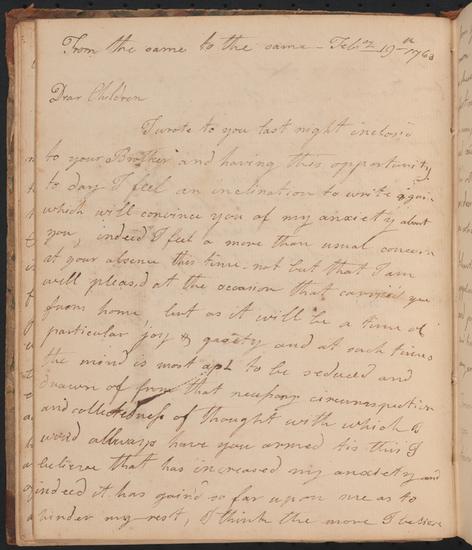 From the same to the same - Febry 19th 1763
Dear Children
I wrote to you last night inclos'd
to your Brother and having this opportunity
to day I feel an inclination to write again
which will convince you of my anxiety about
you, indeed I feel a more than usual concern
at your absence this time - not but that I am
well pleas'd at the occasion that carries you
from home but as it will be a time of
particular joy & gaiety and at such times
the mind is most apt to be seduced and
drawn of from that necessary circumspection
and collectedness of thought with which I
would allways have you armed tis this I
believe that has increased my anxiety and
indeed it has gain'd so far upon me as to
hinder my rest, I think the more I believe